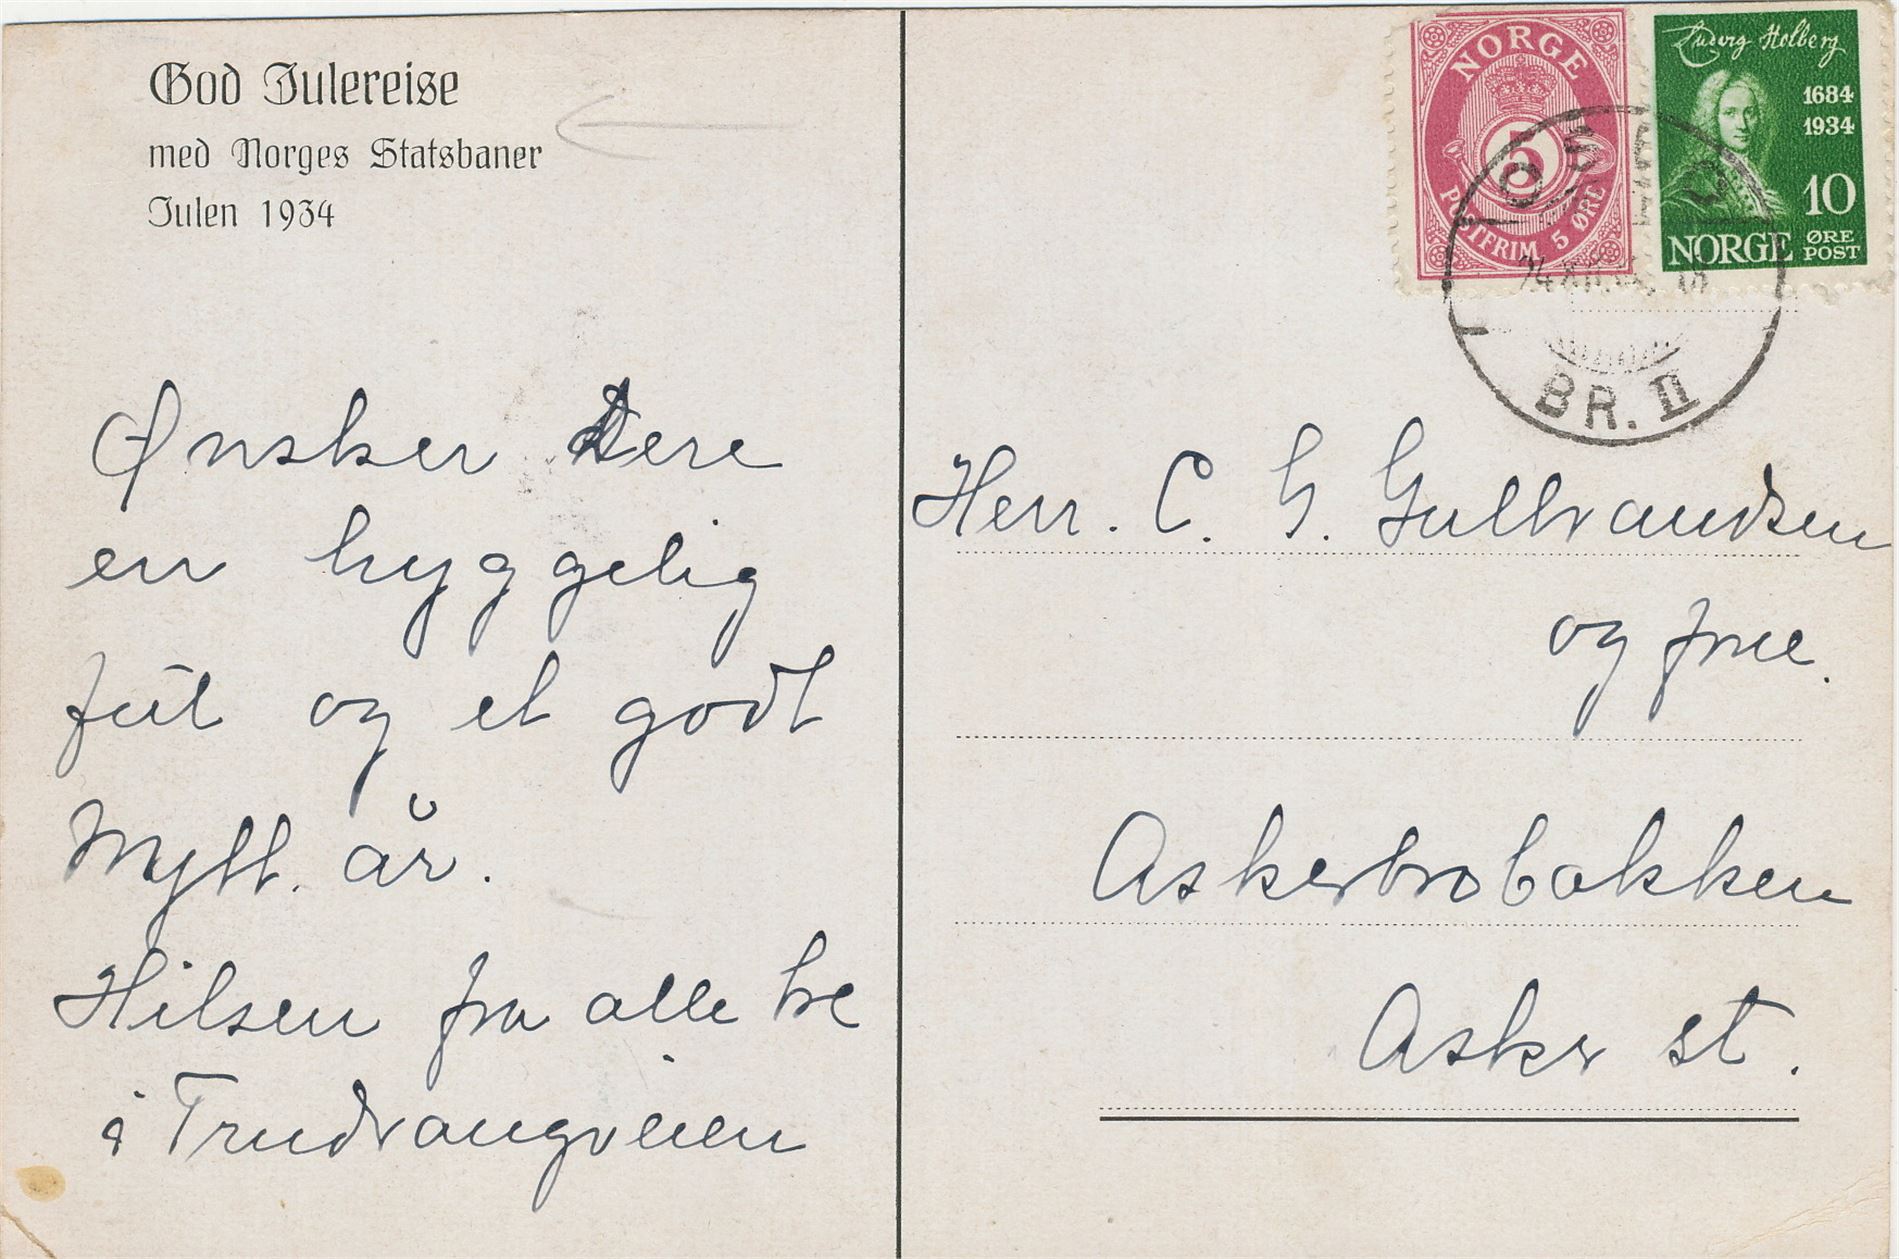 God Julereise
med Norges Statsbaner
Julen 1934
Ønsker Dere
en hyggelig
jul og et godt
Nytt. år.
Hilsen fra alle tre
i Trudvangveien
NORGE
5
POSTFRIM 5 ØRE
Ludvig Holberg
1684
1934
10
ØRE
NORGE POST
OSLO
BR. II
Herr. C. G. Gulbrandsen
og frue.
Askerbrobakken
Asker st.